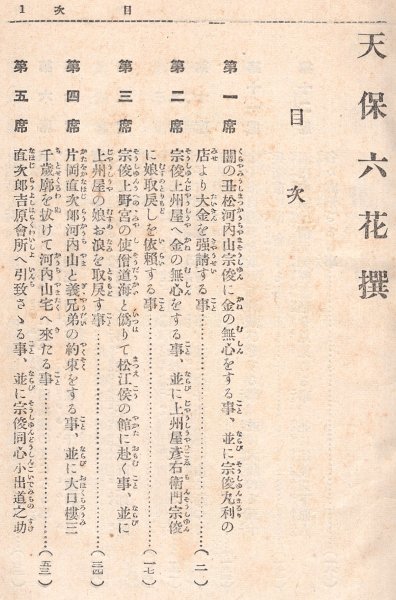 目次 1
天保六花撰
目次
第一席 闇の丑松河内山宗俊に金の無心をする事、並に宗俊丸利の
店より大金を強請する事……(一)
第二席 宗俊上州屋へ金の無心をする事、並に上州屋彦右衛門宗俊
に娘取戻しを依頼する事……(一七)
第三席 宗俊上野宮の使僧道海と偽りて松江侯の館に赴く事、並に
上州屋の娘お浪を取戻す事……(三四)
第四席 片岡直次郎河内山と義兄弟の約束をする事、並に大口樓三
千歳廓を抜けて河内山宅へ來たる事……(五三)
第五席 直次郎吉原會所へ引致さゝる事、並に宗俊同心小出道之助